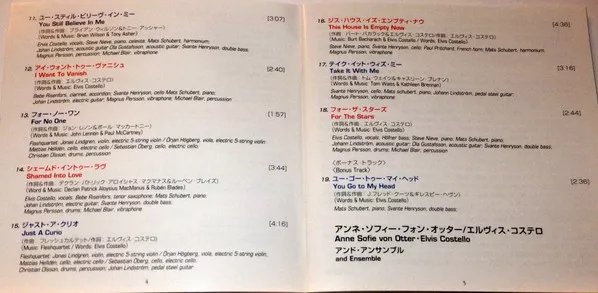 11. ユー・スティル・ビリーヴ・イン・ミー [3:07]
You Still Believe In Me
(作詞&作曲 ブライアン・ウィルソン&トニー・アッシャー)
(Words & Music: Brian Wilson & Tony Asher)
Elvis Costello: vocals, Steve Nieve, piano, celesta; Mats Schubert, harmonium;
Johan Lindström, acoustic guitar; Ola Gustafsson, acoustic guitar; Svante Henryson, double bass;
Magnus Persson, vibraphone; Michael Blair, percussion
12. アイ・ウォント・トゥー・ヴァニシュ [2:40]
I Want To Vanish
(作詞&作曲 エルヴィス・コステロ)
(Words & Music: Elvis Costello)
Bebe Risenfors, clarinet, accordion; Svante Henryson, cello; Mats Schubert, piano;
Johan Lindström, electric guitar; Magnus Persson, vibraphone; Michael Blair, percussion
13. フォー・ノー・ワン [1:57]
For No One
(作詞&作曲 ジョン・レノン&ポール・マッカートニー)
(Words & Music: John Lennon & Paul McCartney)
Fleshquartet: Jonas Lindgren, violin, electric 5-string violin / Örjan Högberg, viola, electric 5-string violin
Mattias Helldén, cello, electric cello / Sebastian Öberg, cello, electric cello;
Christian Olsson, drums, percussion
14. シェームド・イントゥー・ラヴ [3:44]
Shamed Into Love
(作詞&作曲 デクラン・パトリック・アロイシャス・マクマナス&ルーベン・ブレイズ)
(Word & Music: Declan Patrick Aloysius MacManus & Ruben Blades)
Elvis Costello, vocals; Bebe Risenfors, tenor saxophone; Mats Schubert, piano;
Johan Lindström, electric guitar; Svante Henryson, double bass;
Magnus Persson, drums; Michael Blair, vibraphone
15. ジャスト・ア・クリオ [4:16]
Just A Curio
(作曲 フレッシュカルテット/作詞 エルヴィス・コステロ)
(Music: Fleshquartet / Words: Elvis Costello)
Fleshquartet: Jonas Lindgren, violin, electric 5-string violin / Örjan Högberg, viola, electric 5-string violin,
Mattias Helldén, cello, electric cello / Sebastian Öberg, cello, electric cello;
Christian Olsson, drums, percussion; Johan Lindström, pedal steel guitar
4
16. ジス・ハウス・イズ・エンプティ・ナウ [4:36]
This House Is Empty Now
(作詞&作曲 バート・バカラック&エルヴィス・コステロ)
(Words & Music: Burt Bacharach & Elvis Costello)
Steve Nieve, piano; Svante Henryson, cello; Paul Pritchard, French horn; Mats Schubert, harmonium;
Magnus Persson, vibraphone
17. テイク・イット・ウィズ・ミー [3:16]
Take It With Me
(作詞&作曲 トム・ウェイツ&キャスリーン・ブレナン)
(Words & Music: Tom Waits & Kathleen Brennan)
Svante Henryson, cello; Mats Schubert, piano; Johann Lindström, pedal steel guitar;
Magnus Persson, vibraphone
18. フォー・ザ・スターズ [2:44]
For The Stars
(作詞&作曲 エルヴィス・コステロ)
(Words & Music: Elvis Costello)
Elvis Costello, vocals; Steve Nieve, piano; Mats Schubert, piano;
Johan Lindström, acoustic guitar; Ola Gustafsson, acoustic guitar; Svante Henryson, double bass;
Magnus Persson, drums; Michael Blair, percussion
<ボーナス・トラック>
(Bonus Track)
19. ユー・ゴー・トゥー・マイ・ヘッド [2:36]
You Go to My Head
(作詞&作曲 J.フレッド・クーツ&ギレスピー・ヘヴン)
Mats Schubert, piano; Svante Henryson, double bass;
アンネ・ソフィー・フォン・オッター/エルヴィス・コステロ
Anne Sofie von Otter・Elvis Costello
アンド・アンサンブル
and Ensemble
5